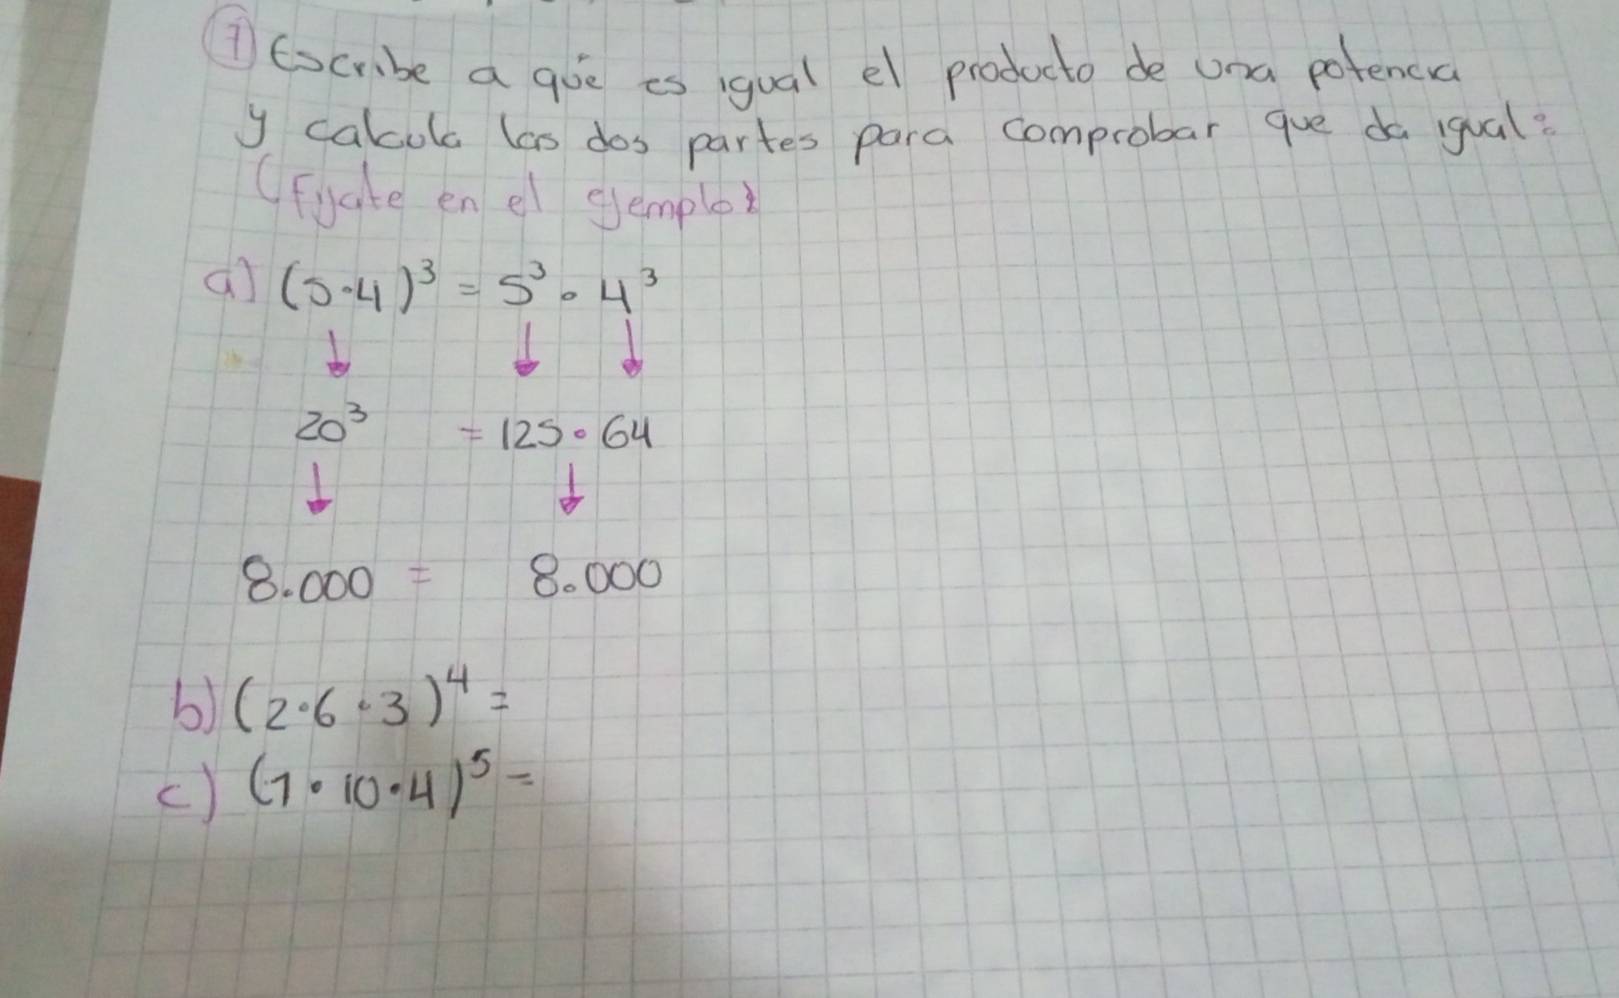 7) Escribe a qué es igual el producto de una potencia
y calcula las dos partes para comprobar que da igual:
(Fijate en el ejemplo)
a) (5·4)³ = 5³ · 4³
↓ ↓ ↓
20³ = 125 · 64
↓ ↓
8.000 = 8.000
b) (2·6·3)⁴ =
c) (7·10·4)⁵ =